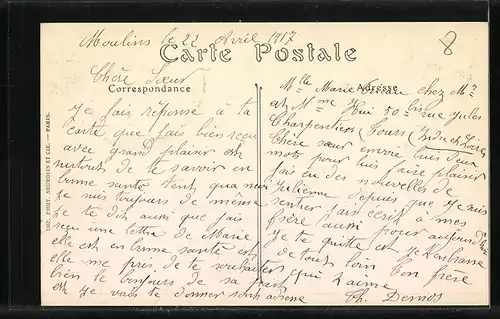 Moulins le 22 Avril 1917
Carte Postale
Chère Sœur
Correspondance
je fais réponse à ta
carte que j'ai bien reçu
avec grand plaisir et
surtout de te savoir en
bonne santé tent qua moi
je suis toujours de même
je te dit aussi que j'ai
reçu une lettre de Marie
elle est en bonne santé et
elle me pris de te souhaiter
bien le bonjours de sa part
et je vais te donner son adresse
Adresse
Mlle Marie chez Mr
et Mme Hui 50 bis rue jules
Charpentier Tours Indre et Loire
Chère sœur envoie lui deux
mots pour lui faire plaisir
j'ai eu des nouvelles de
Julienne depuis que je suis
sentier j'ai écrit à mes
frère aussi pour aujourd'hui
je te quitte et je t'embrasse
de tout loin Ton frère
qui t'aime
Th. Demos
IMP. PHOT. NEURDEIN ET CIE. — PARIS.
8